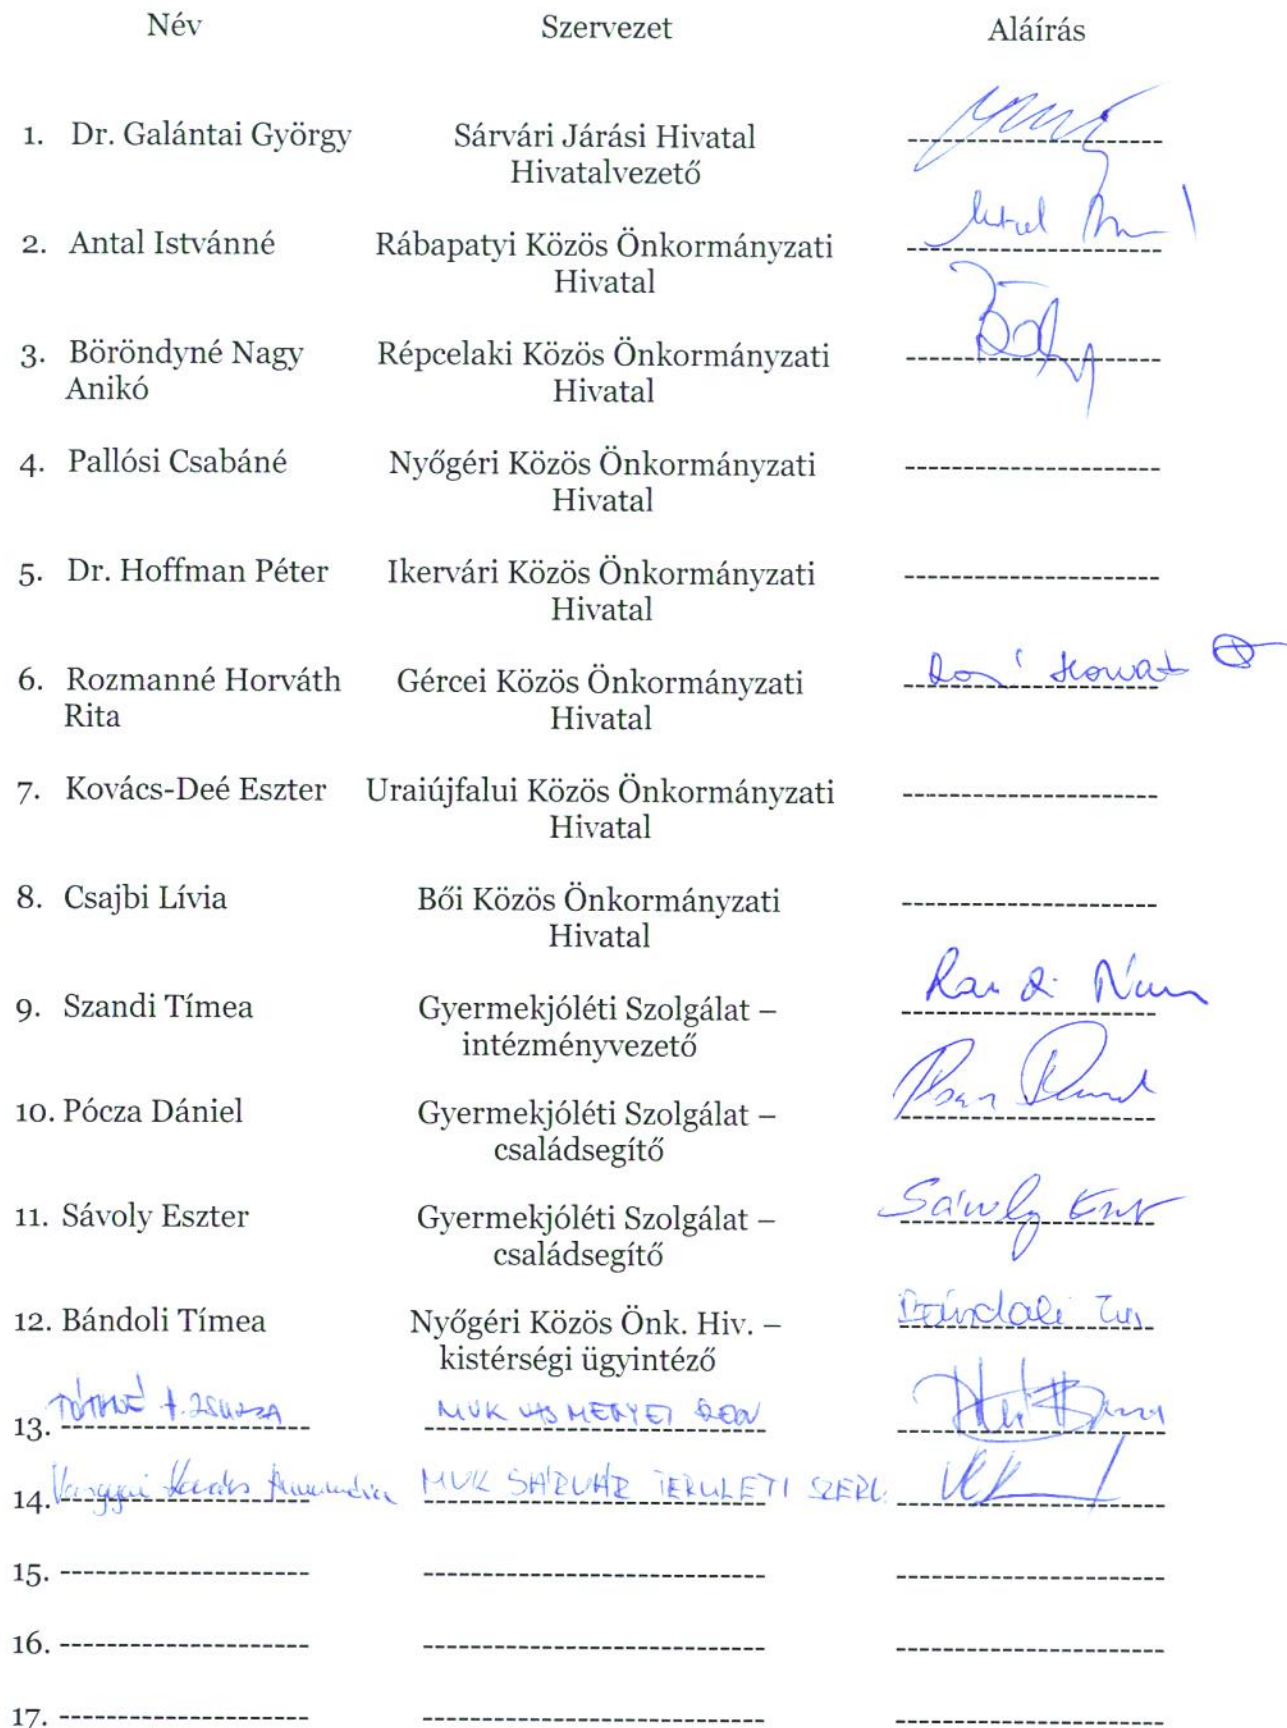 Név Szervezet Aláírás
1. Dr. Galántai György Sárvári Járási Hivatal
Hivatalvezető
2. Antal Istvánné Rábapatyi Közös Önkormányzati
Hivatal
3. Böröndyné Nagy Répcelaki Közös Önkormányzati
Anikó Hivatal
4. Pallósi Csabáné Nyőgéri Közös Önkormányzati
Hivatal
5. Dr. Hoffman Péter Ikervári Közös Önkormányzati
Hivatal
6. Rozmanné Horváth Gércei Közös Önkormányzati
Rita Hivatal
7. Kovács-Deé Eszter Uraiújfalui Közös Önkormányzati
Hivatal
8. Csajbi Lívia Bői Közös Önkormányzati
Hivatal
9. Szandi Tímea Gyermekjóléti Szolgálat –
intézményvezető
10. Pócza Dániel Gyermekjóléti Szolgálat –
családsegítő
11. Sávoly Eszter Gyermekjóléti Szolgálat – Sávoly
családsegítő
12. Bándoli Tímea Nyőgéri Közös Önk. Hiv. –
kistérségi ügyintéző
13. MVK
14. Kovács MVK SÁRVÁR TERÜLETI
15.
16.
17.